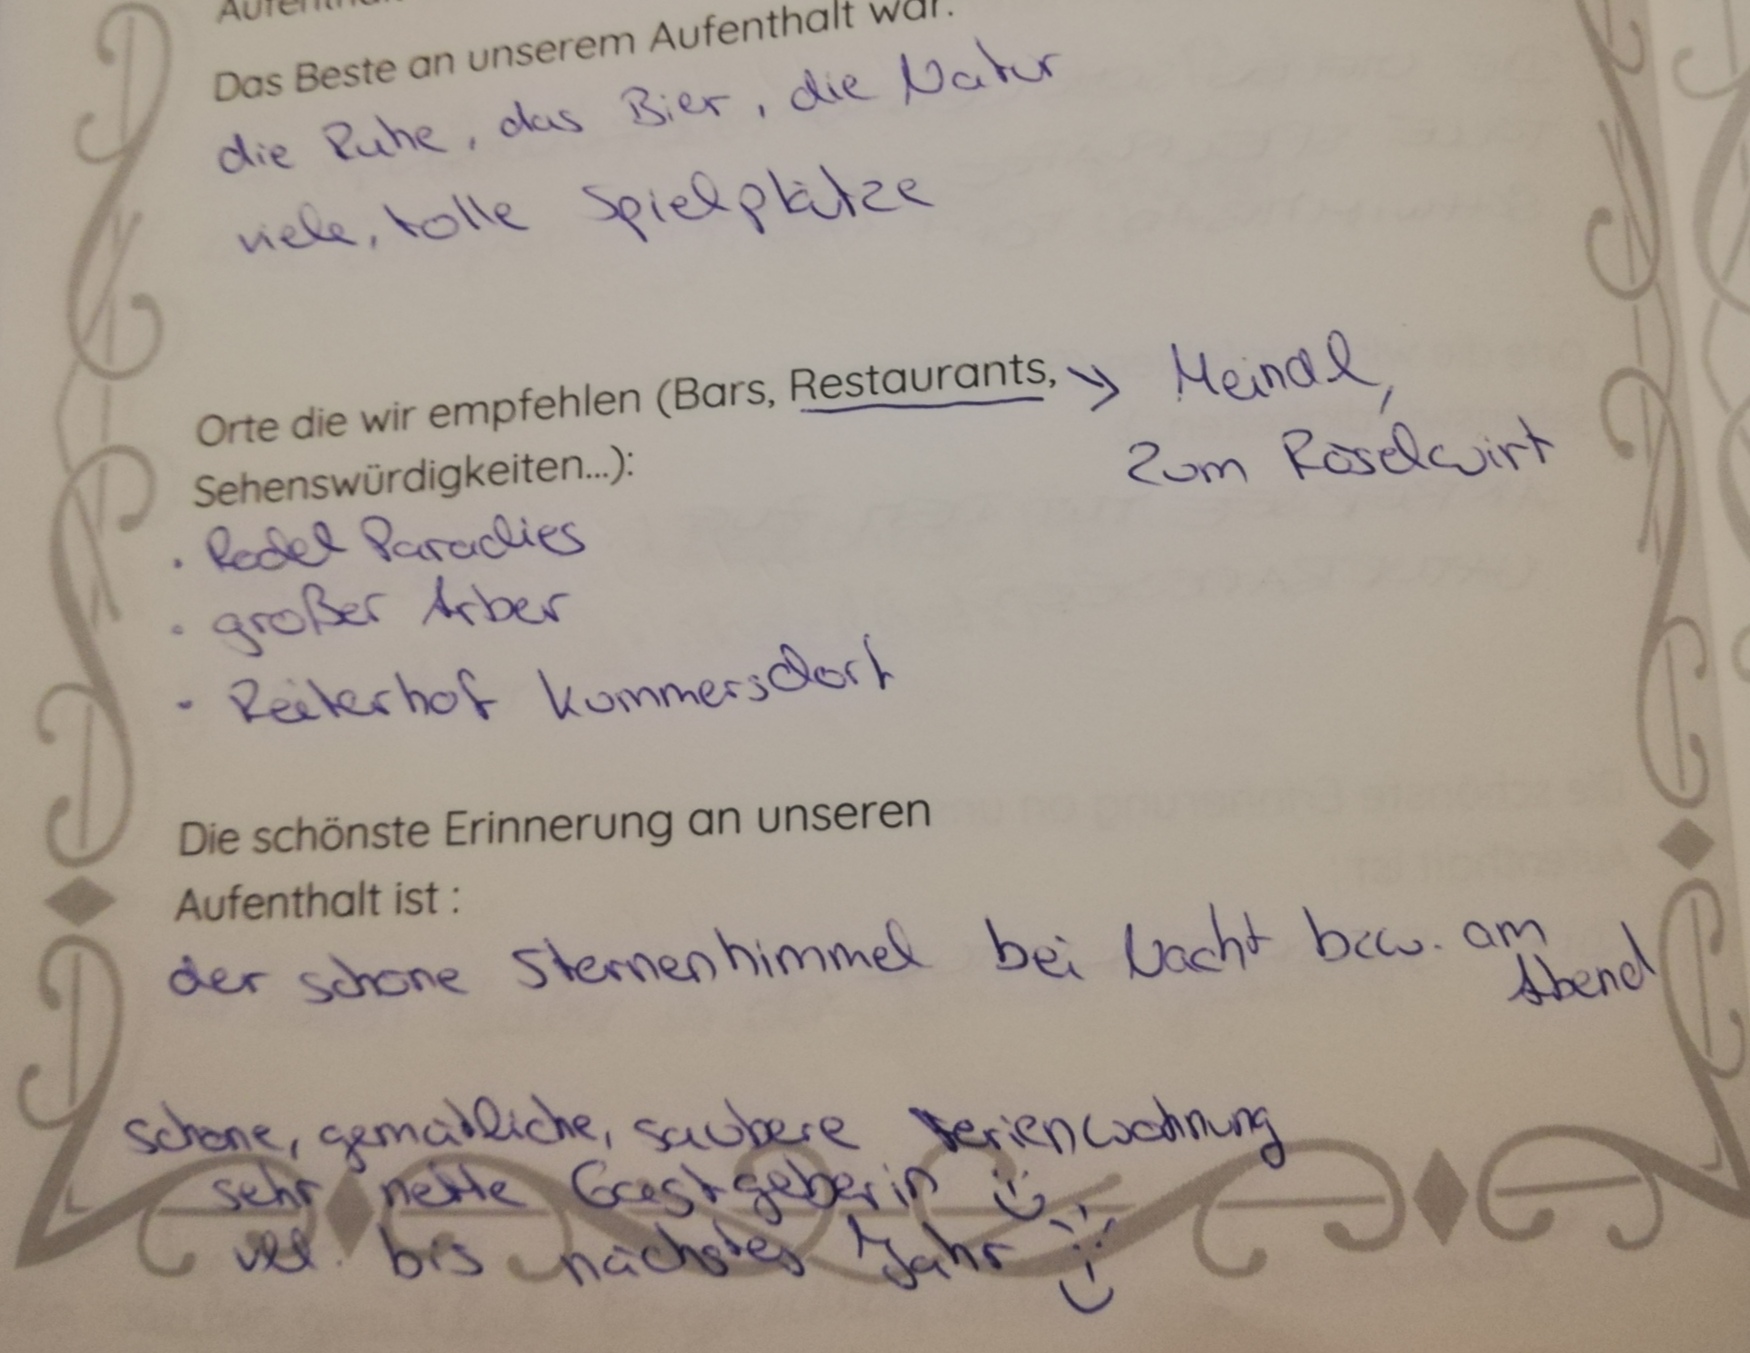 Das Beste an unserem Aufenthalt war:
die Ruhe, das Bier, die Natur
viele, tolle Spielplätze
Orte die wir empfehlen (Bars, Restaurants, → Meindl,
Sehenswürdigkeiten...): Zum Röselwirt
· Rodel Paradies
· großer Arber
· Reiterhof Kummersdorf
Die schönste Erinnerung an unseren
Aufenthalt ist :
der schöne Sternenhimmel bei Nacht bzw. am
Abend
schöne, gemütliche, saubere Ferienwohnung
sehr nette Gastgeberin
vll. bis nächstes Jahr